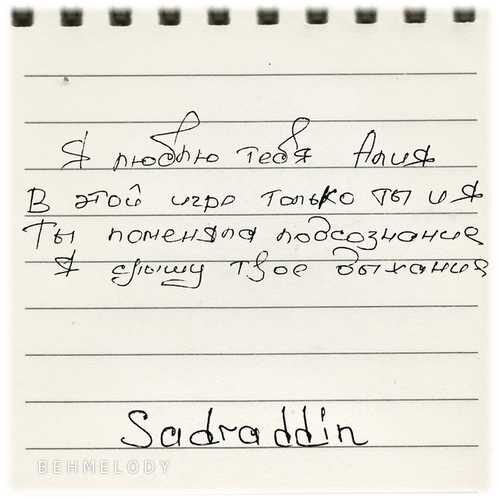 Я люблю тебя Алия
В этой игре только ты и я
Ты поменяла подсознание
Я слышу твое дыхание
Sadraddin
BEHMELODY